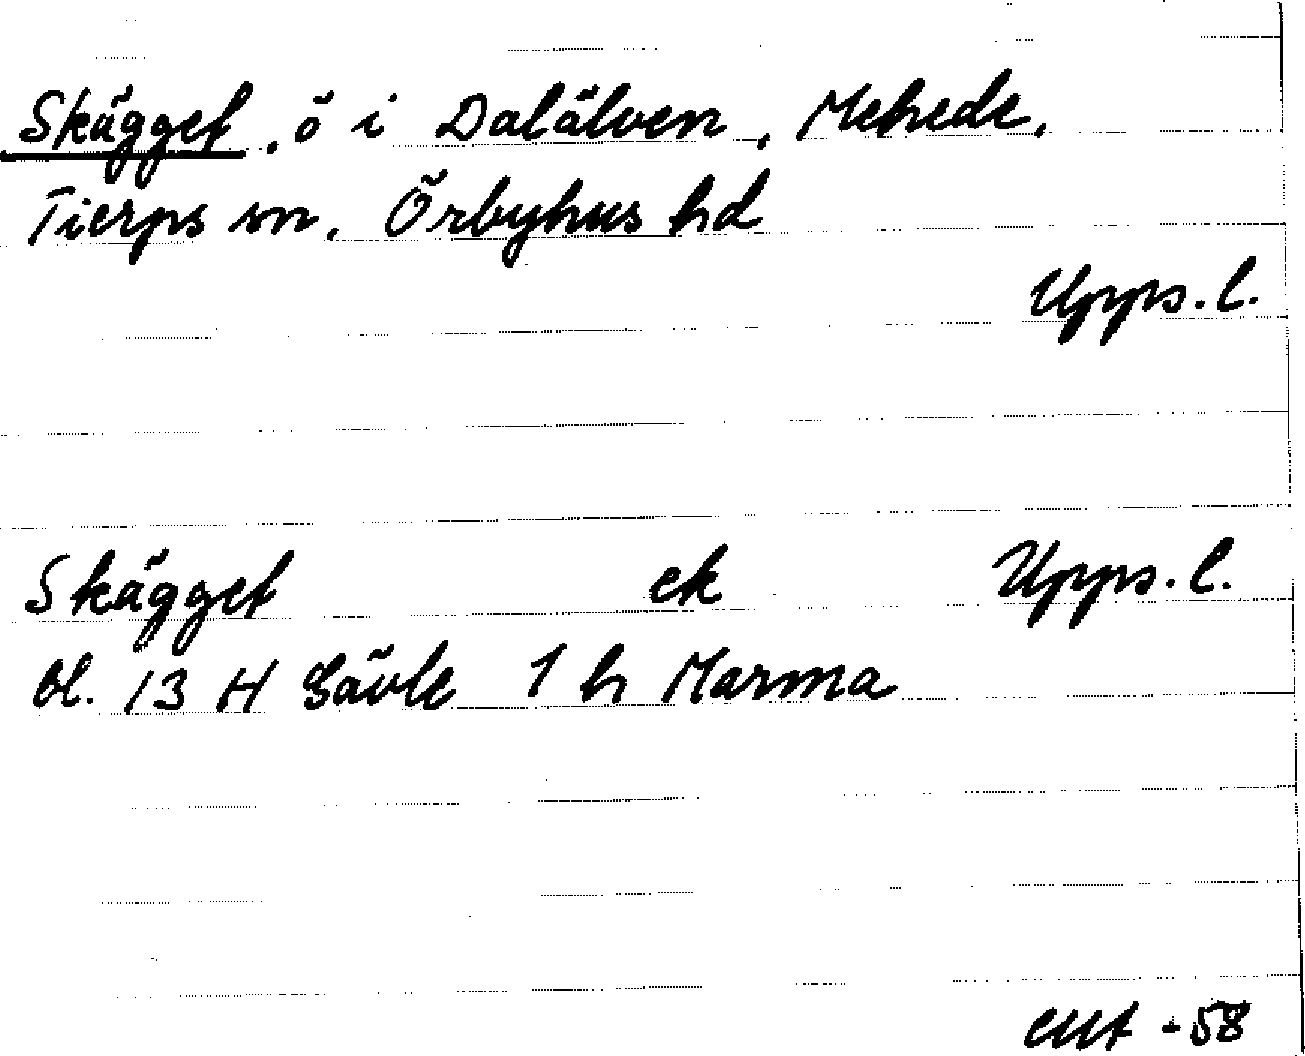 Skägget, ö i Dalälven, Mehede,
Tierps sn, Örbyhus hd
Upps. l.
Skägget ek Upps. l.
bl. 13 H Gävle 1 h Marma
-58